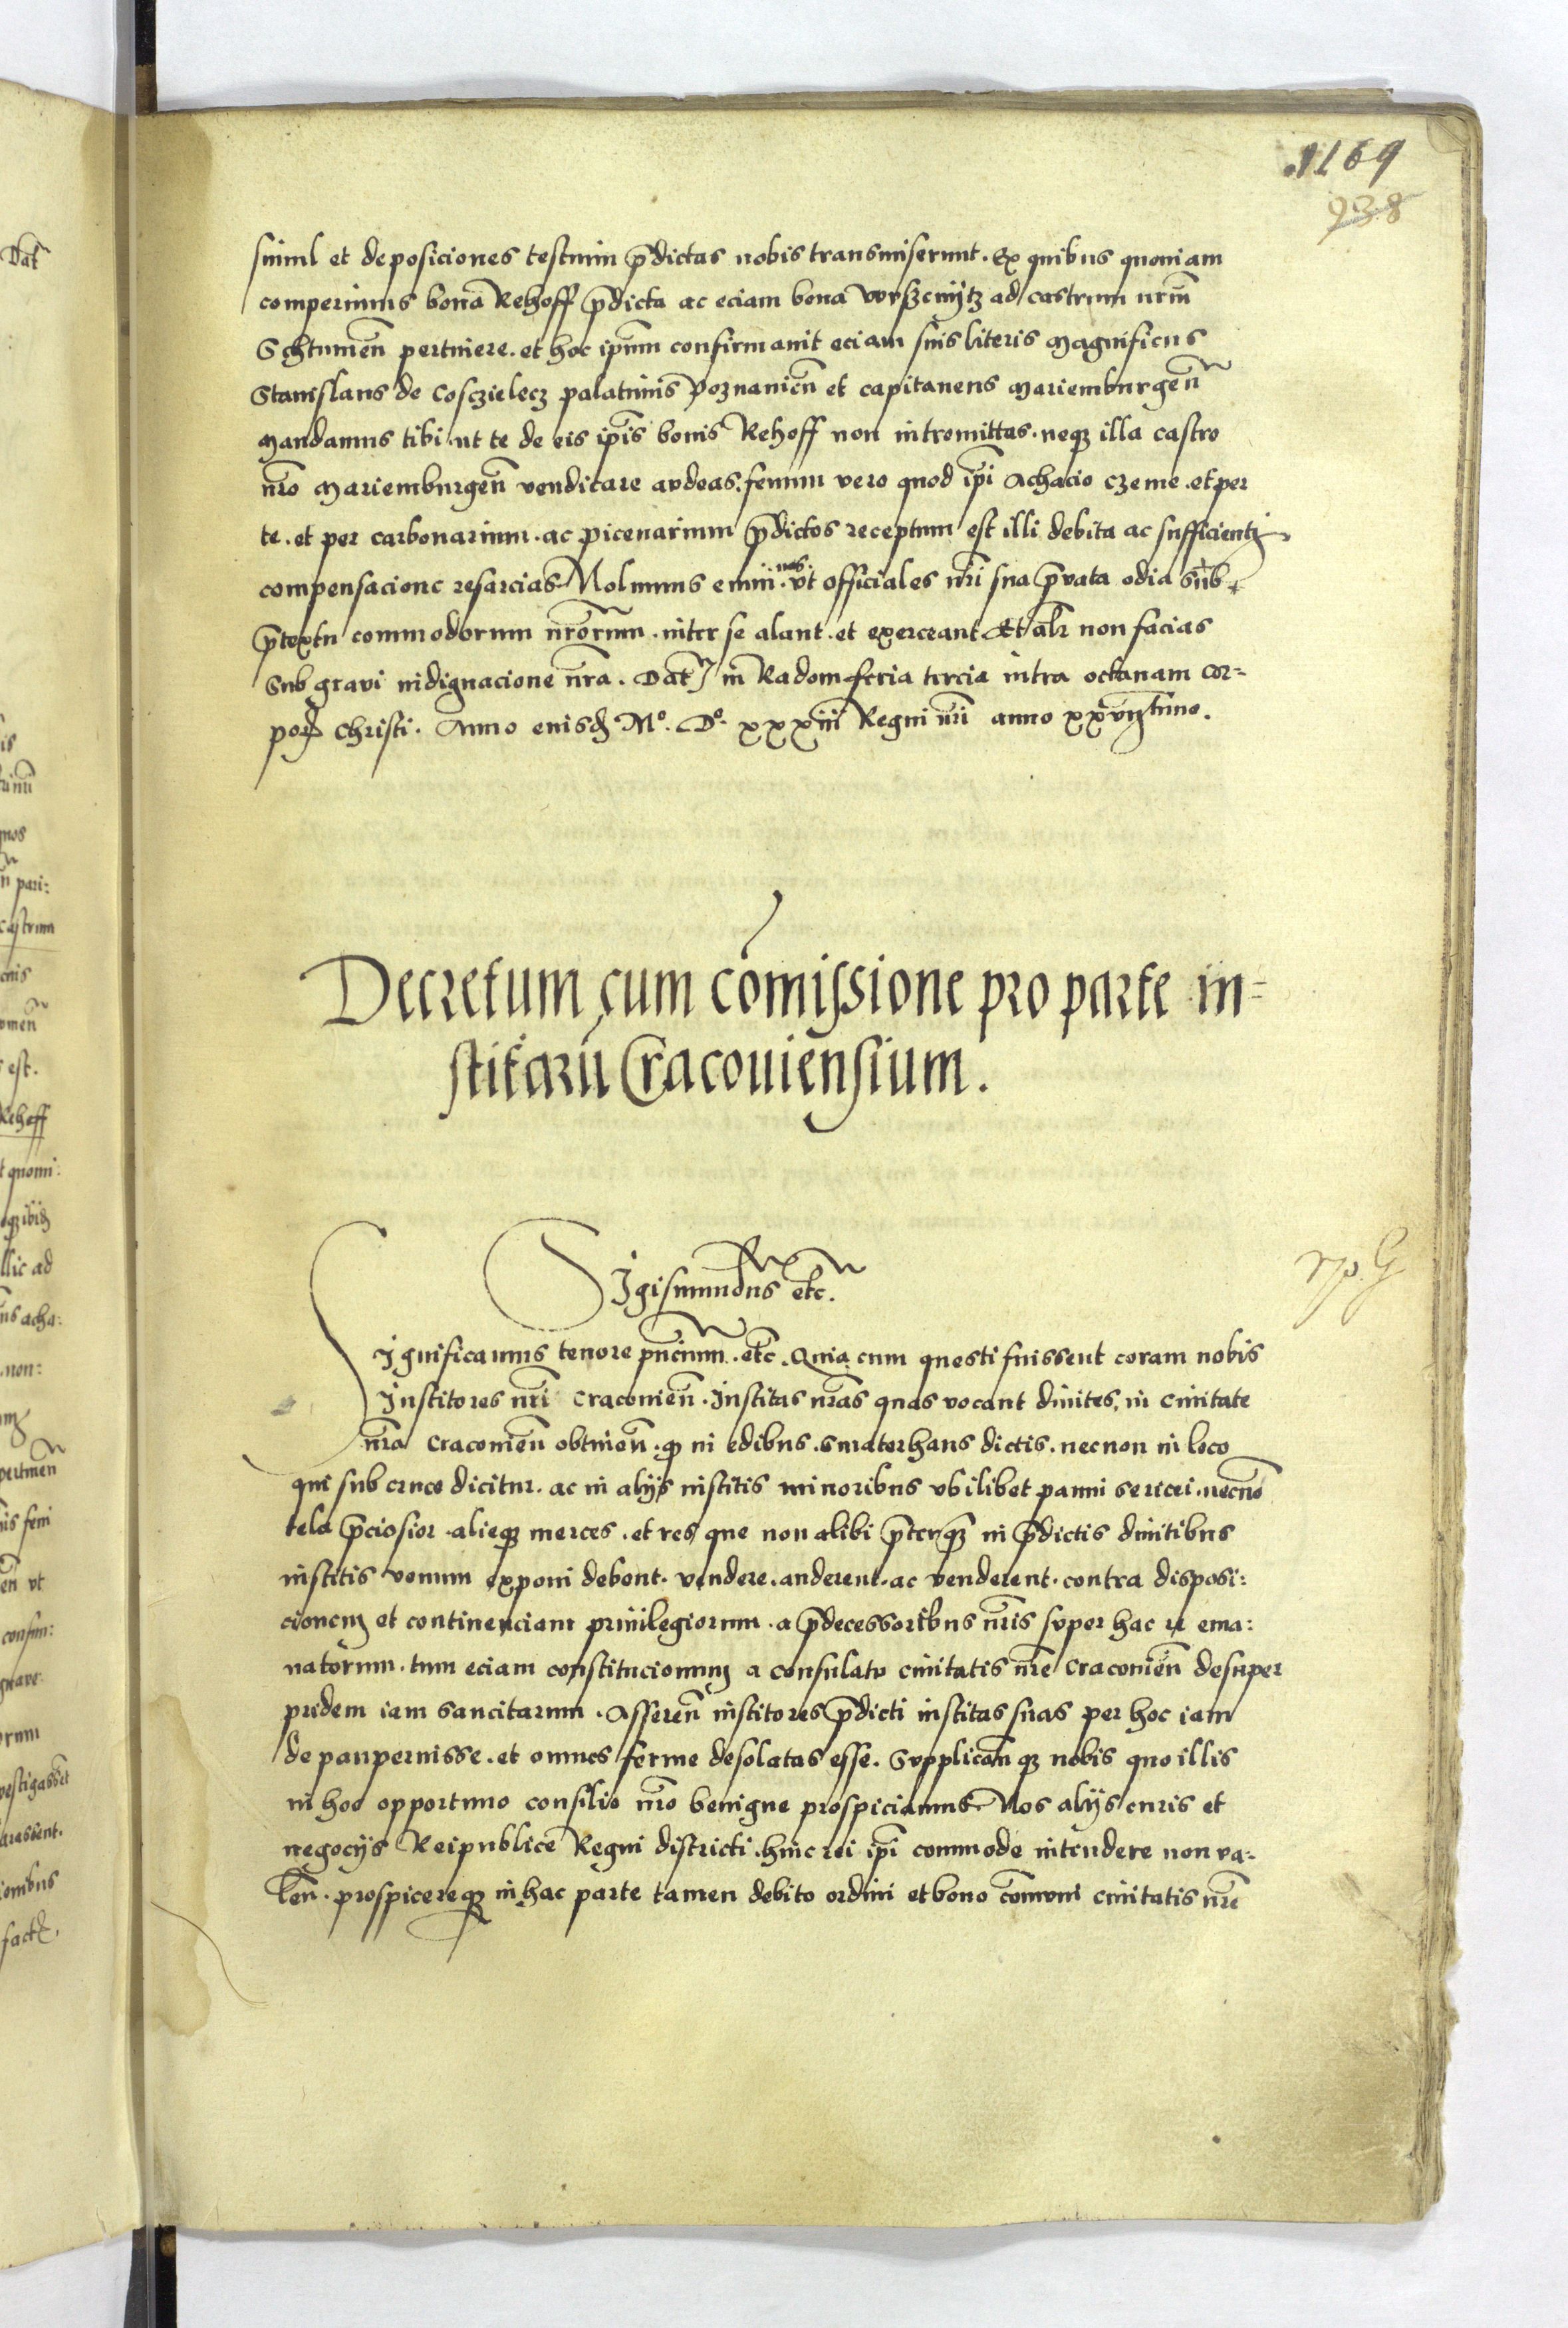 1169
938
simul et deposiciones testium p̄dictas nobis transmiserunt. Ex quibus quoniam
comperimus bona Rehoff p̄dicta ac eciam bona ad castrum nrm̄
Schtumeñ pertinere. et hoc ip̄um confirmavit eciam suis literis Magnificus
Stanislaus de Cosczielecz palatinus Poznanieñ et capitaneus Mariemburgeñ
Mandamus tibi ut te de eis ip̄is bonis Rehoff non intromittas. neq3 illa castro
nr̄o Mariemburgeñ vendicare audeas. fenum vero quod ip̄i Achacio czeme. et per
te. et per carbonarium. ac picenarium p̄dictos receptum est illi debita ac sufficienti
compensacione resarcias. Nolumus enim nos. vt officiales nr̄i sua p̄vata odia sub
p̄textu commodorum nr̄orum. inter se alant. et exerceant Et alr̄ non facias
sub gravi indignacione nr̄a. Dat̄ in Radom feria tercia intra octavam Cor=
por̄ Christi. Anno eiusd̄ Mº. Dº. xxxiii Regni nr̄i anno xxvijtimo.
Decretum cum com̄issione pro parte in=
stitarū Cracoviensium.
Sigismundus etc̄.
Significamus tenore pn̄cium. etc̄. Quia cum questi fuissent coram nobis
Institores nr̄i Cracovieñ. Institas nr̄as quas vocant divites, in Civitate
nr̄a Cracovieñ obtineñ. q̄ in edibus. Smaterhaus dictis. necnon in loco
qui sub cruce dicitur. ac in alijs institis minoribus vbilibet panni sericei. necnō
tela p̄ciosior. alieq3 merces. et res que non alibi p̄terq̄3 in p̄dictis divitibus
institis venum exponi debent. vendere. auderent. ac venderent. contra disposi:
cionem et continenciam privilegiorum. a p̄decessoribus nr̄is super hac re ema:
natorum. tum eciam constitucionum a consulatu civitatis nr̄e Cracovieñ desuper
pridem iam sancitarum. Asseren̄ institores p̄dicti institas suas per hoc iam
depauperuisse. et omnes ferme desolatas esse. Supplicañ q3 nobis quo illis
in hoc opportuno consilio nr̄o benigne prospiciamus. Nos alijs curis et
negocijs Reipublice Regni districti. huic rei ip̄i commode intendere non va=
leñ. prospicereq3 in hac parte tamen debito ordini et bono com̄uni civitatis nr̄e